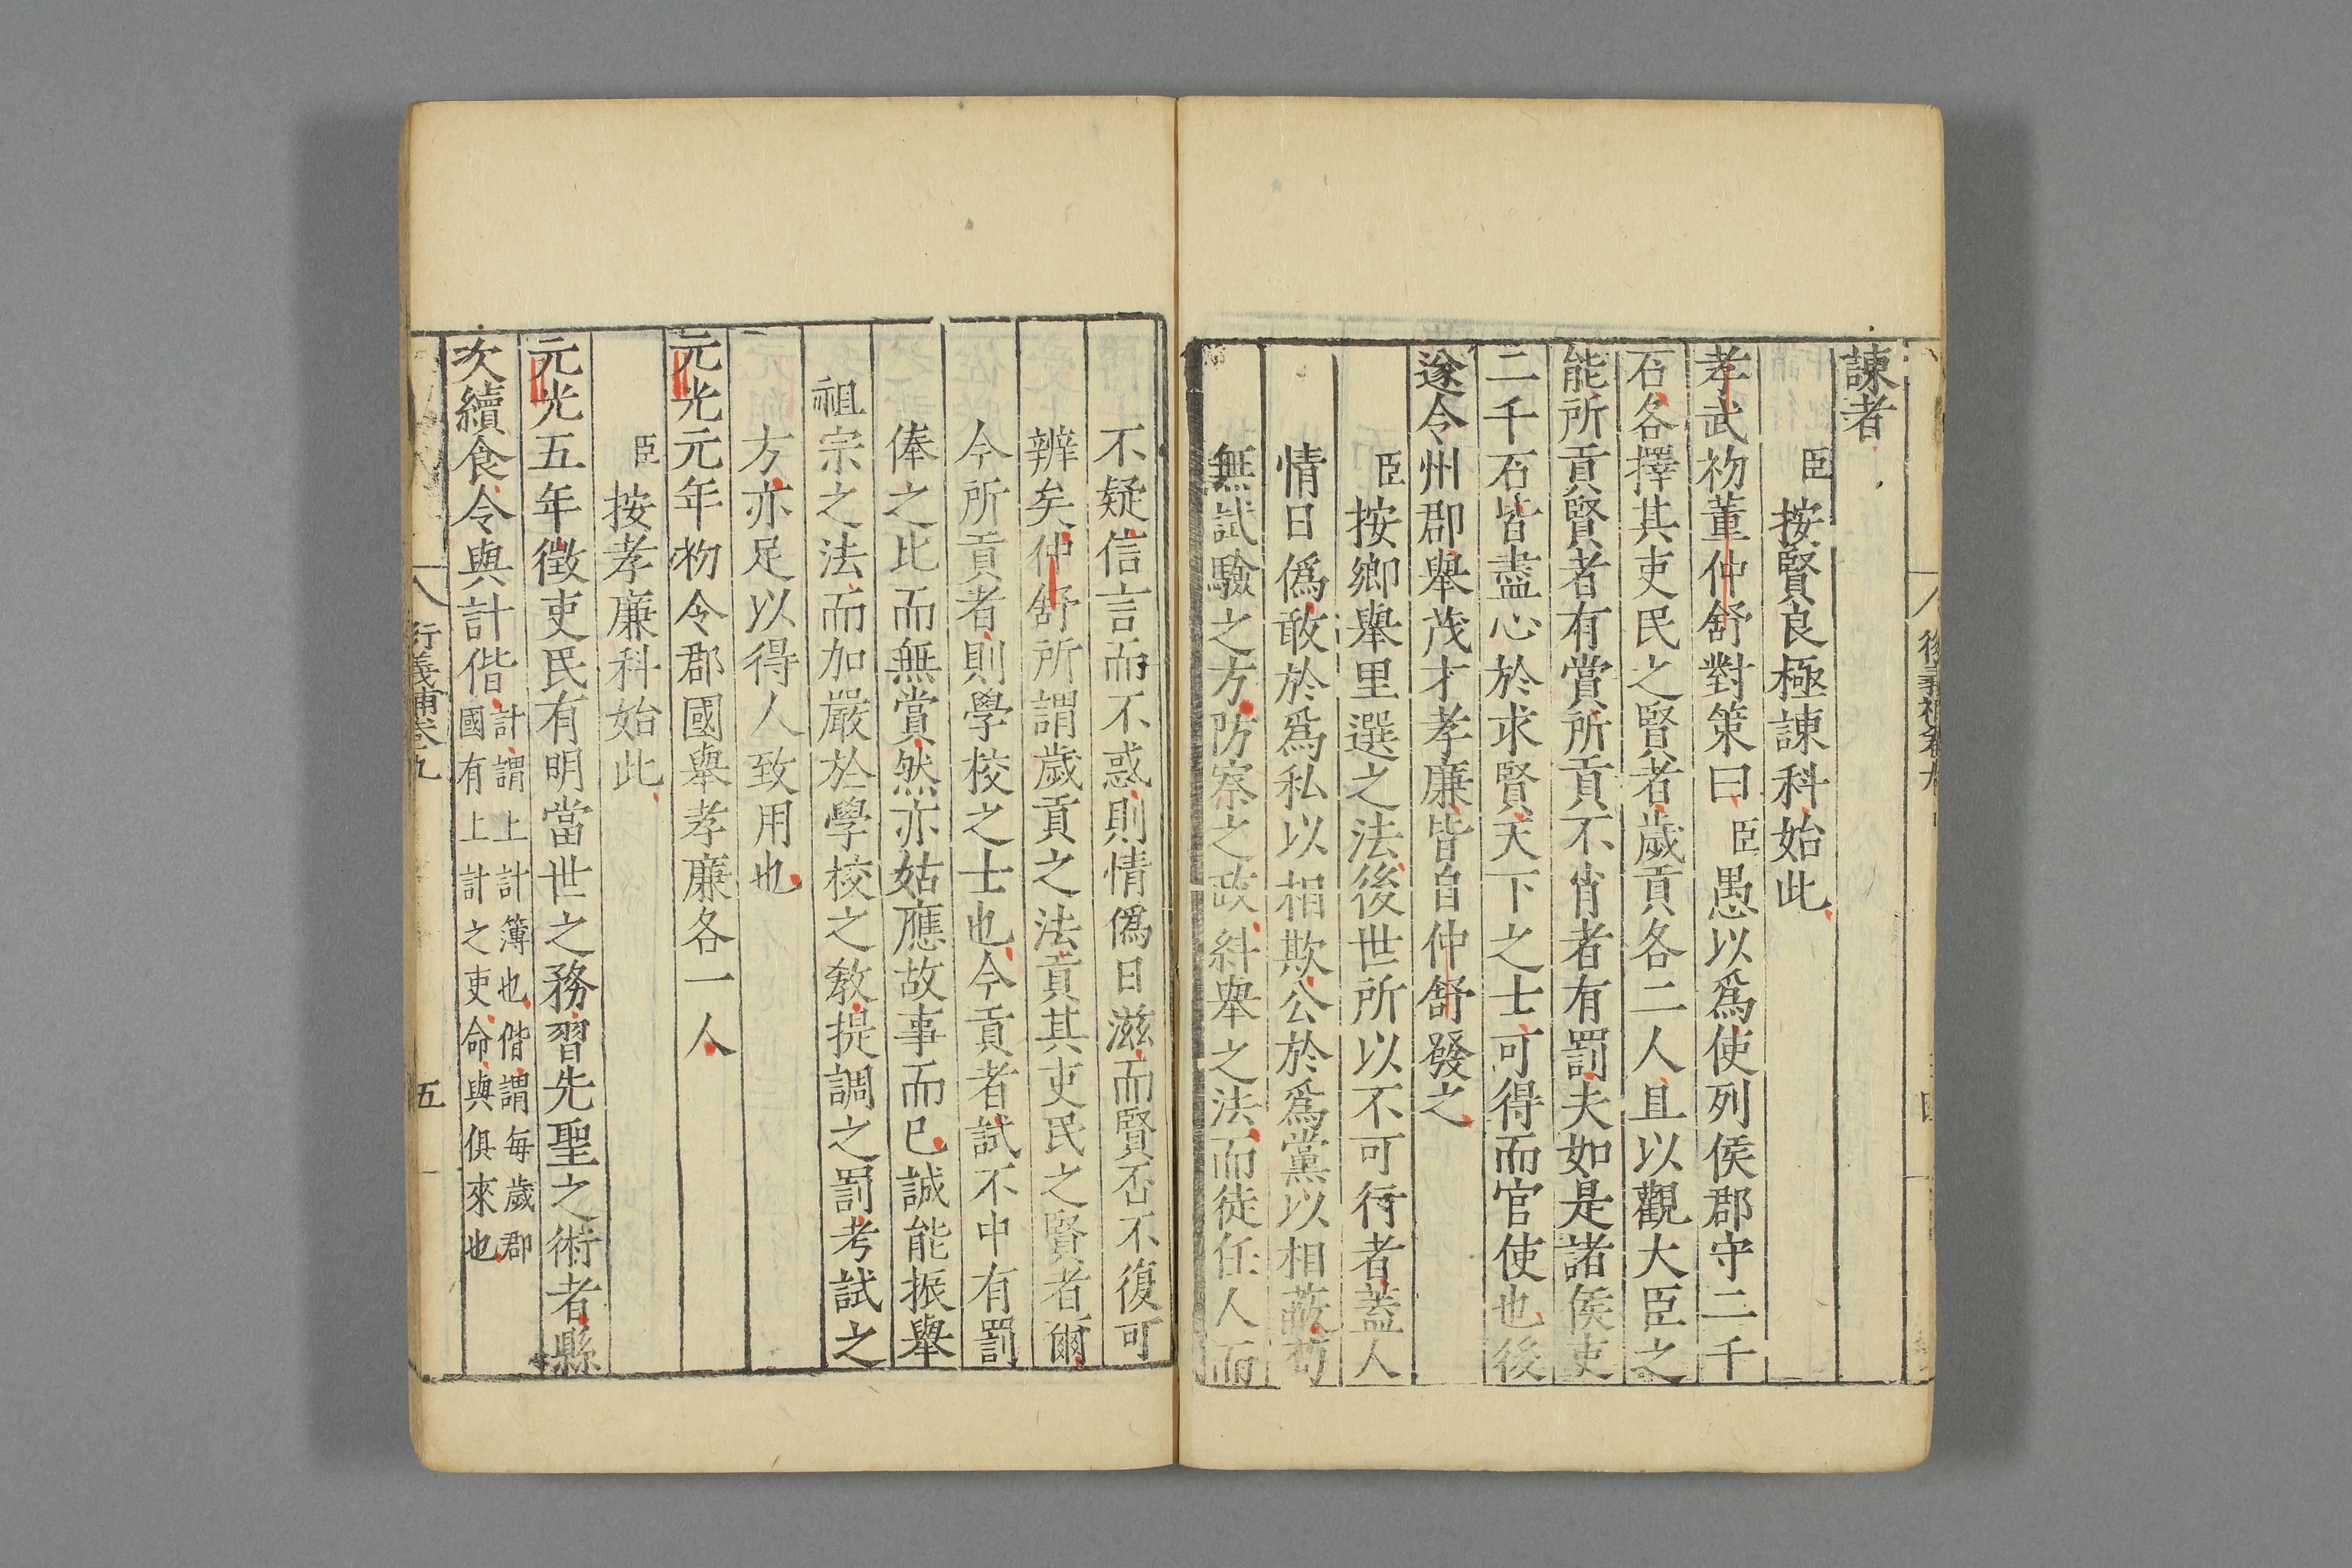 諫者
臣按賢良極諫科始此
孝武初董仲舒對策曰臣愚以爲使列侯郡守二千
石各擇其吏民之賢者歲貢各二人且以觀大臣之
能所貢賢者有賞所貢不肖者有罰夫如是諸侯吏
二千石皆盡心於求賢天下之士可得而官使也後
遂令州郡舉茂才孝廉皆自仲舒發之
臣按鄉舉里選之法後世所以不可行者蓋人
情日僞敢於爲私以相欺公於爲黨以相蔽苟
無試驗之方防察之政糾舉之法而徒任人而
不疑信言而不惑則情僞日滋而賢否不復可
辨矣仲舒所謂歲貢之法貢其吏民之賢者爾
今所貢者則學校之士也今貢者試不中有罰
俸之比而無賞然亦姑應故事而已誠能振舉
祖宗之法而加嚴於學校之教提調之罰考試之
方亦足以得人致用也
元光元年初令郡國舉孝廉各一人
臣按孝廉科始此
元光五年徵吏民有明當世之務習先聖之術者縣
次續食令與計偕計謂上計簿也偕謂每歲郡
國有上計之吏命與俱來也
衍義補卷九
五